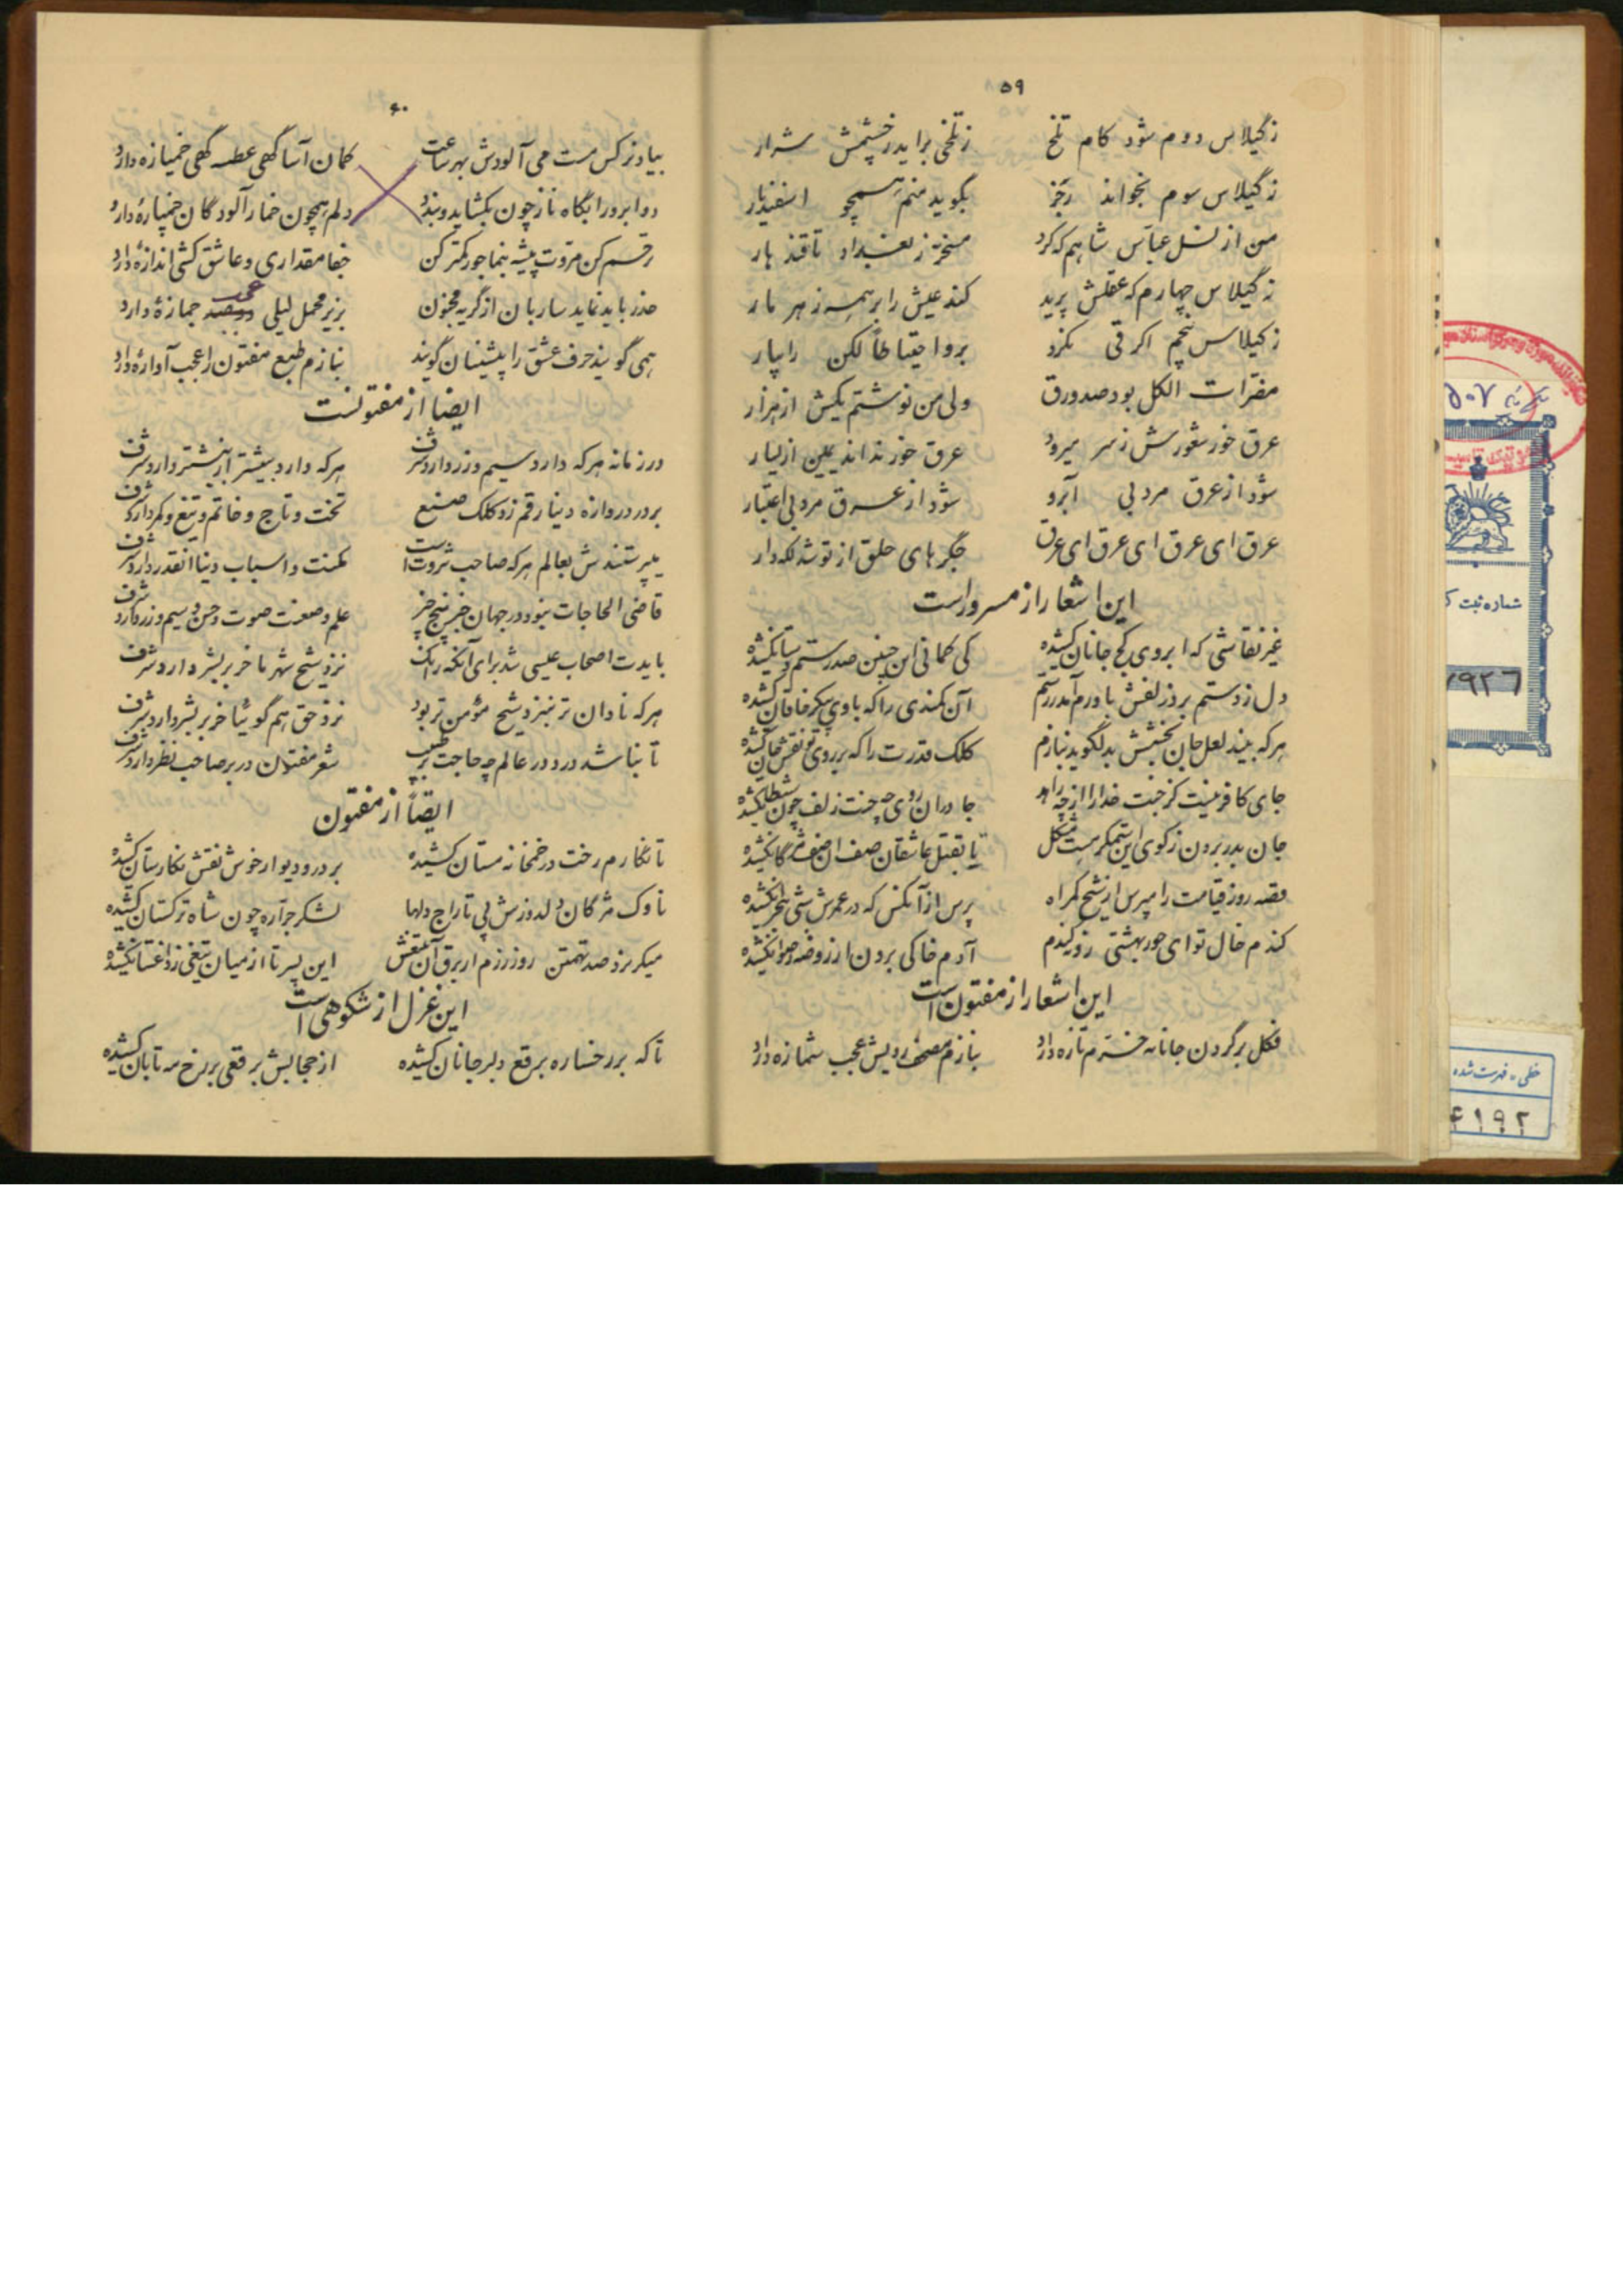 ۵۹
ز گیلاس دوم شود کام تلخ    ز تلخی برآید ز خشمش شرار
ز گیلاس سوم بخواند رَجَز    بگوید منم همچو اسفندیار
من از نسل عباس شاهم که کرد    مسخر ز بغداد تا قندهار
ز گیلاس چهارم که عقلش پرید    کند عیش را بر همه زهر مار
ز گیلاس پنجم اگر قی نکرد    برو احتیاطاً لگن را بیار
مضرات الکل بود صد ورق    ولی من نوشتم یکش از هزار
عرق خور شعورش ز سر میرود    عرق خور نداند یمین از یسار
شود از عرق مرد بی آبرو    شود از عرق مرد بی اعتبار
عرق ای عرق ای عرق ای عرق    جگرهای خلق از تو شد لکه دار
این اشعار از مسرور است
غیر نقاشی که ابروی کج جانان کشیده    کی کمانی این چنین صد رستم دستان کشیده
دل ز دستم برد زلفش باورم آمد ز رستم    آن کمندی را که با وی پیکر خاقان کشیده
هر که بیند لعل جان بخشش بدل گوید بنازم    کلک قدرت را که بر روی تو نقش جان کشیده
جای کافر نیست کز جنت خدا را از چه زاهد    جا در آن روی چو جنت زلف چون شیطان کشیده
جان بدر بردن ز کوی این ستمگر هست مشکل    تا بقتل عاشقان صف از صف مژگان کشیده
قصه روز قیامت را مپرس از شیخ گمراه    پرس از آنکس که در عمرش شبی هجران کشیده
گندم خال تو ای حور بهشتی زد کیندم    آدم خاکی برون از روضه رضوان کشیده
این اشعار از مفتون است
فکل بر گردن جانانه خرّم تازه دارد    بنازم مصحف رویش عجب شیرازه دارد
۶۰
بیاد نرکس مست می آلودش بهر ساعت    کمان آسا گهی عطسه گهی خمیازه دارد
دو ابرو را بگاه ناز چون بگشاید و بندد    دلم همچون خمار آلودگان خمیازه دارد
رحم کن مروت پیشه بنما جور کمتر کن    جفا مقداری و عاشق کشی اندازه دارد
حذر باید نماید ساربان از گریه مجنون    بزیر محمل لیلی عجب جمازه دارد
همی گویند حرف عشق را پیشینیان گویند    بنازم طبع مفتون را عجب آوازه دارد
ایضا از مفتونست
در زمانه هر که دارد سیم و زر دارد شرف    هر که دارد بیشتر از بیشتر دارد شرف
بر در دروازه دنیا رقم زد کلک صنع    تخت و تاج و خاتم و تیغ و کمر دارد شرف
میپرستندش بعالم هر که صاحب ثروت است    مکنت و اسباب دنیا آنقدر دارد شرف
قاضی الحاجات نبود در جهان جز پنج چیز    علم و صنعت صوت و حسن و سیم و زر دارد شرف
نزد شیخ شهر ما خر بر بشر دارد شرف
هر که نادان تر بنزد شیخ مؤمن تر بود    نزد حق هم گوئیا خر بر بشر دارد شرف
تا نباشد درد در عالم چه حاجت بر طبیب    شعر مفتون در بر صاحب نظر دارد شرف
ایضاً از مفتون
تا نگارم رخت در خمخانه مستان کشیده    بر در و دیوار خوش نقش نگارستان کشیده
ناوک مژگان دلدوزش پی تاراج دلها    لشکر جراره چون شاه ترکستان کشیده
میگریزد صد تهمتن روز رزم از برق آن تیغش    این پسر تا از میان تیغی ز داغستان کشیده
این غزل از شکوهی است
تا که بر رخساره برقع دلبر جانان کشیده    از حجابش برقعی بر رخ مه تابان کشیده
۵۰۷
شماره ثبت
۷۹۲۶
خطی - فهرست شده
۶۱۹۲